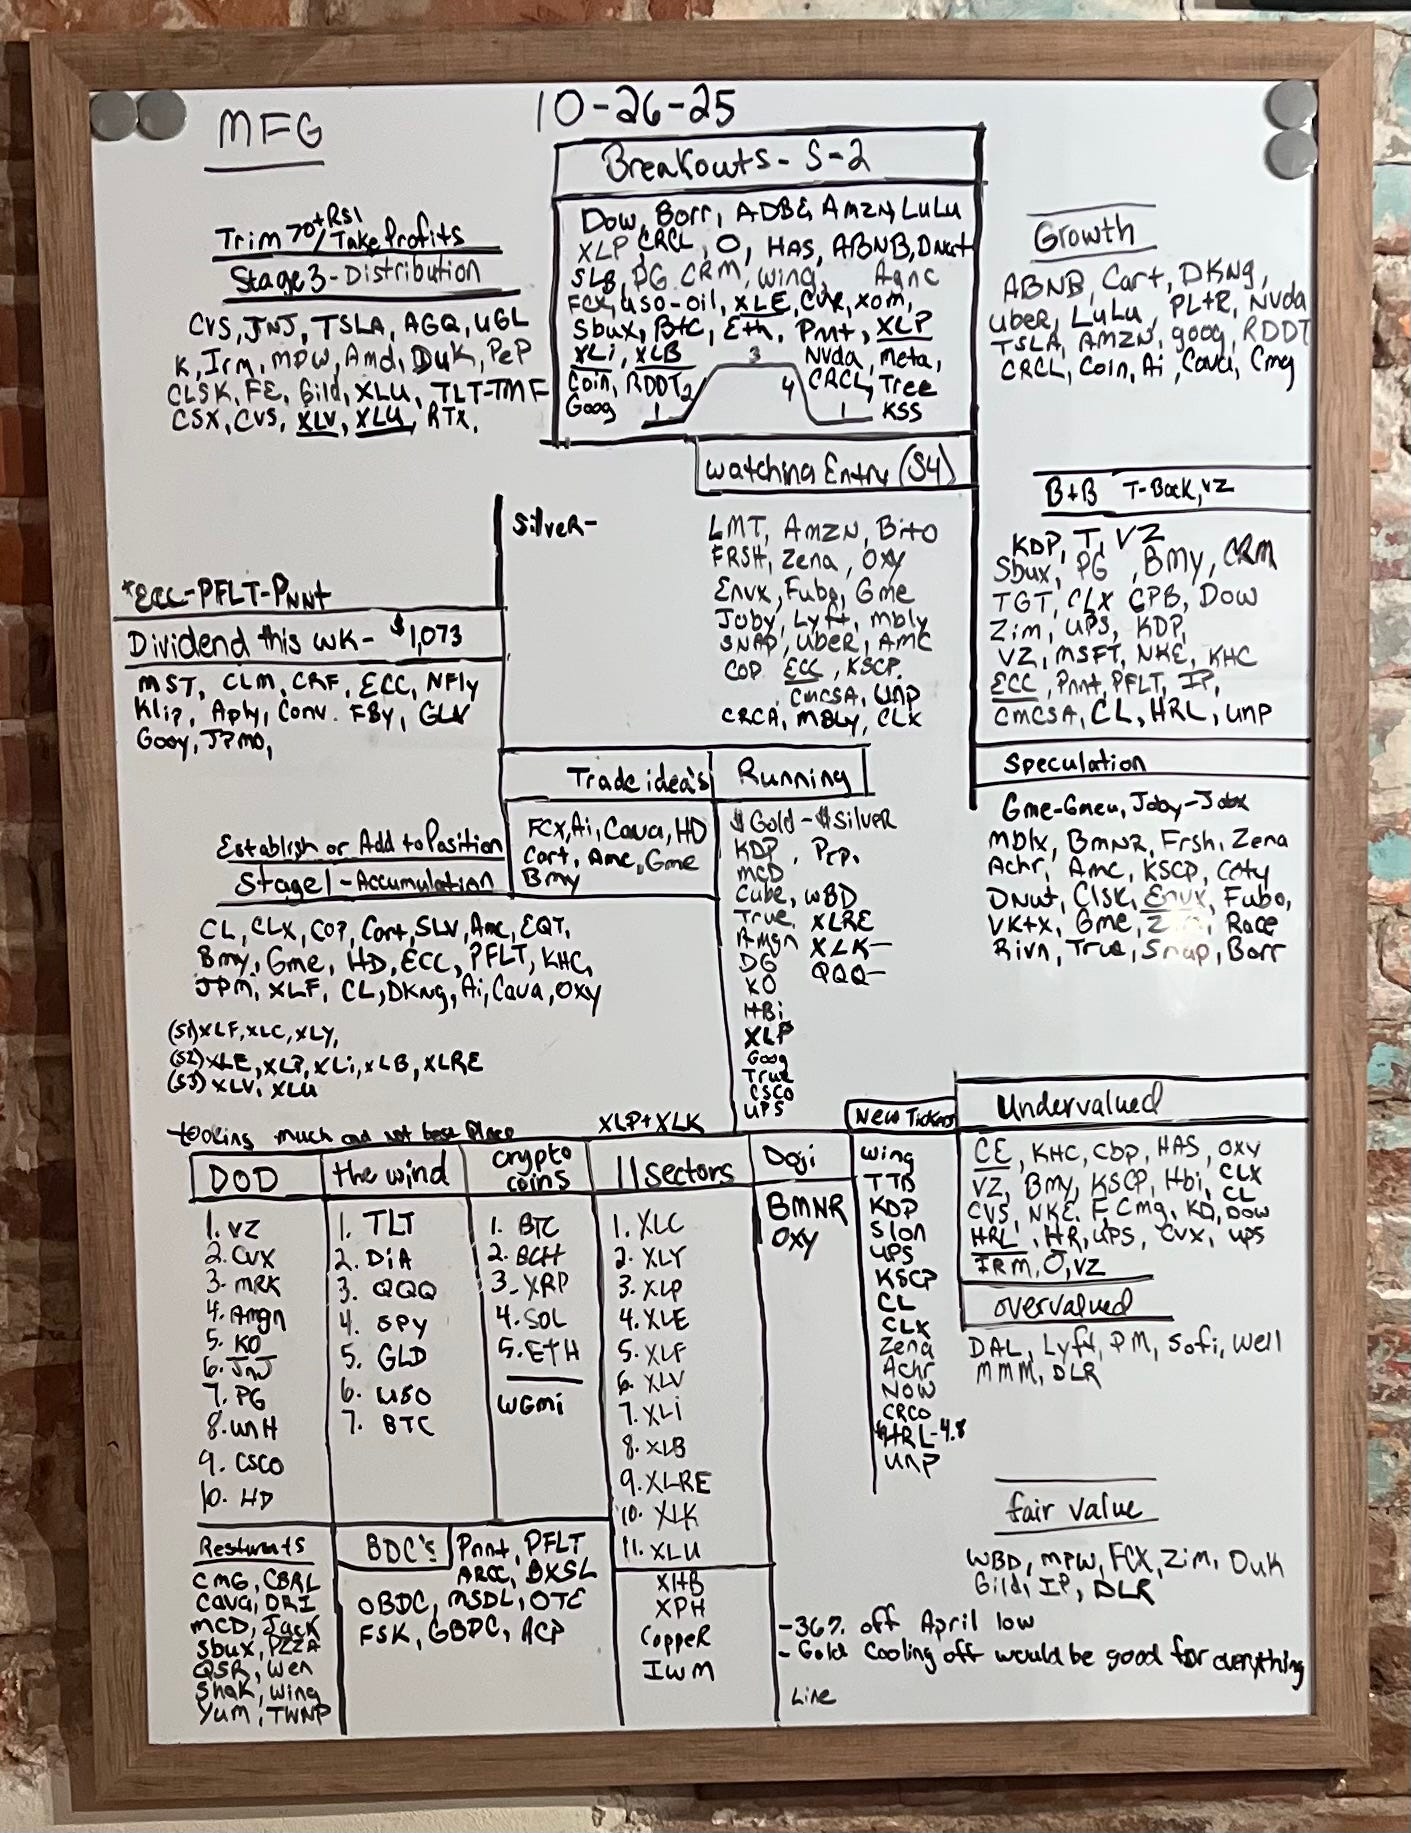 MFG
10-26-25
Breakouts - S-2
Dow, Borr, ADBE, Amzn, LuLu
XLP, CRCL, O, HAS, ABNB, Dnut
SLB, PG, CRM, wing, Agnc
FCX, uso-oil, XLE, CVX, xom,
Sbux, Btc, Eth, Pnnt, XLP
XLi, XLB 3 Nvda, meta,
Coin, RDDT 2 4 CRCL, Tree
Goog 1 1 KSS
Trim 70+ RSI / Take Profits
Stage 3 - Distribution
CVS, JNJ, TSLA, AGQ, UGL
K, Irm, mpw, Amd, DuK, PeP
CLSK, FE, Gild, XLU, TLT-TMF
CSX, CVS, XLV, XLU, RTX,
Growth
ABNB, Cart, DKng,
uber, LuLu, PLtR, Nvda
TSLA, AMZN, goog, RDDT
CRCL, Coin, Ai, Cava, Cmg
watching Entry (S4)
SilveR-
LMT, AmZN, Bito
FRSH, Zena, OXY
Envx, Fubo, Gme
Joby, Lyft, mbly
SNAP, UBER, AMC
COP ECC, KSCP.
CMCSA, UNP
CRCA, MBLY, CLX
B+B T-Back, VZ
KDP, T, VZ
Sbux, PG, Bmy, CRM
TGT, CLX CPB, Dow
Zim, UPS, KDP,
VZ, MSFT, NKE, KHC
ECC, Pnnt, PFLT, IP,
CMCSA, CL, HRL, unp
*ECC-PFLT-Pnnt
Dividend this wk- $1,073
MST, CLM, CRF, ECC, NFly
Klip, Aply, Conv. FBy, GLV
Gooy, JPMO,
Speculation
Gme-Gmeu, Joby-Jobx
Mblx, BmNR, Frsh, Zena
Achr, Amc, KSCP, Coty
DNut, Clsk, Envx, Fubo,
VKtx, Gme, Race
Rivn, True, Snap, Borr
Trade idea's
FCX, Ai, Cava, HD
Cart, Amc, Gme
Bmy
Running
$Gold-$SilveR
KDP, Pep,
MCD
Cube, WBD
True, XLRE
Amgn XLK-
DG QQQ-
KO
HBi
XLP
Goog
True
CSCO
UPS
Establish or Add to Position
Stage 1 - Accumulation
CL, CLX, COP, Cart, SLV, Amc, EQT,
Bmy, Gme, HD, ECC, PFLT, KHC,
JPM, XLF, CL, DKng, Ai, Cava, OXY
(S1) XLF, XLC, XLY,
(S2) XLE, XLP, XLi, XLB, XLRE
(S3) XLV, XLU
too long much and not best Place
XLP+XLK
DOD
1. VZ
2. CVX
3. MRK
4. Amgn
5. KO
6. JNJ
7. PG
8. UNH
9. CSCO
10. HD
the wind
1. TLT
2. DiA
3. QQQ
4. SPY
5. GLD
6. USO
7. BTC
crypto
coins
1. BTC
2. BCH
3. XRP
4. SOL
5. EtH
WGMi
11 sectors
1. XLC
2. XLY
3. XLP
4. XLE
5. XLF
6. XLV
7. XLi
8. XLB
9. XLRE
10. XLK
11. XLU
XHB
XPH
CoppeR
IWM
Doji
BMNR
OXY
New Tickers
Wing
TTD
KDP
Slon
UPS
KSCP
CL
CLX
Zena
Achr
NOW
CRCO
*HRL-4.8
UNP
Undervalued
CE, KHC, COP, HAS, OXY
VZ, Bmy, KSCP, Hbi, CLX
CVS, NKE, F, Cmg, KO, DOW CL
HRL, HR, UPS, CVX, UPS
IRM, O, VZ
overvalued
DAL, Lyft, PM, Sofi, Well
MMM, DLR
fair value
WBD, mpw, FCX, Zim, Duk
Gild, IP, DLR
-36% off April low
- Gold Cooling off would be good for everything
Line
Resturnts
CMG, CBRL
Cava, DRI
MCD, Jack
Sbux, PZZA
QSR, Wen
Shak, Wing
Yum, TWNP
BDC's
Pnnt, PFLT
ARCC, BXSL
OBDC, MSDL, OTC
FSK, GBDC, ACP